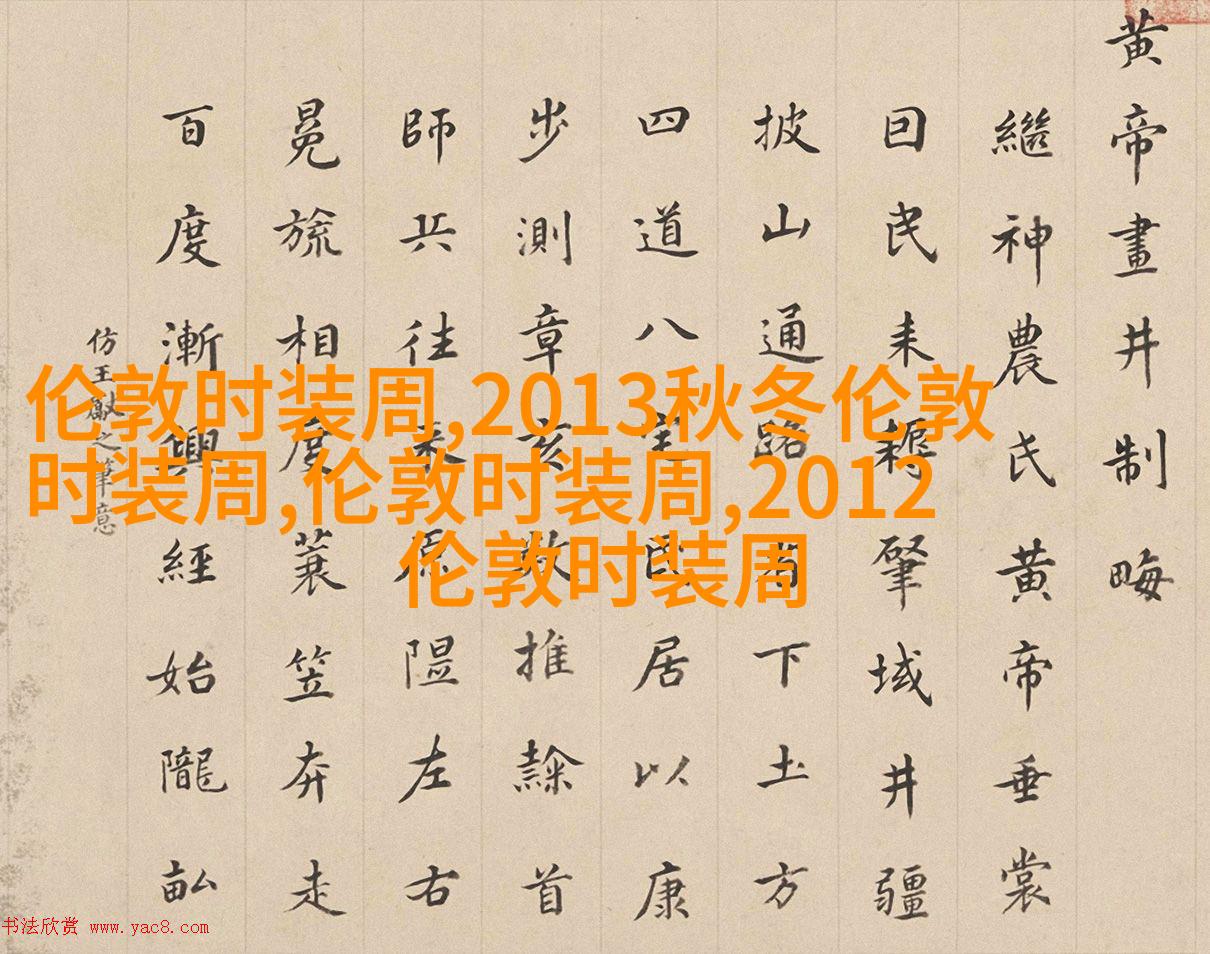 伦敦时装周,2013秋冬伦敦
时装周,伦敦时装周,2012
伦敦时装周
黄帝畫井制畮
繼神農氏黄帝垂裳
囙民耒耨肇域井疆
披山通路有下土方
四道八宅民居以康
步測章亥數推隸首
師兵往来原隰左右
冕旒相度蓑笠奔走
百度漸興經始隴畝
仿王獻之筆意
书法欣赏 www.yac8.com